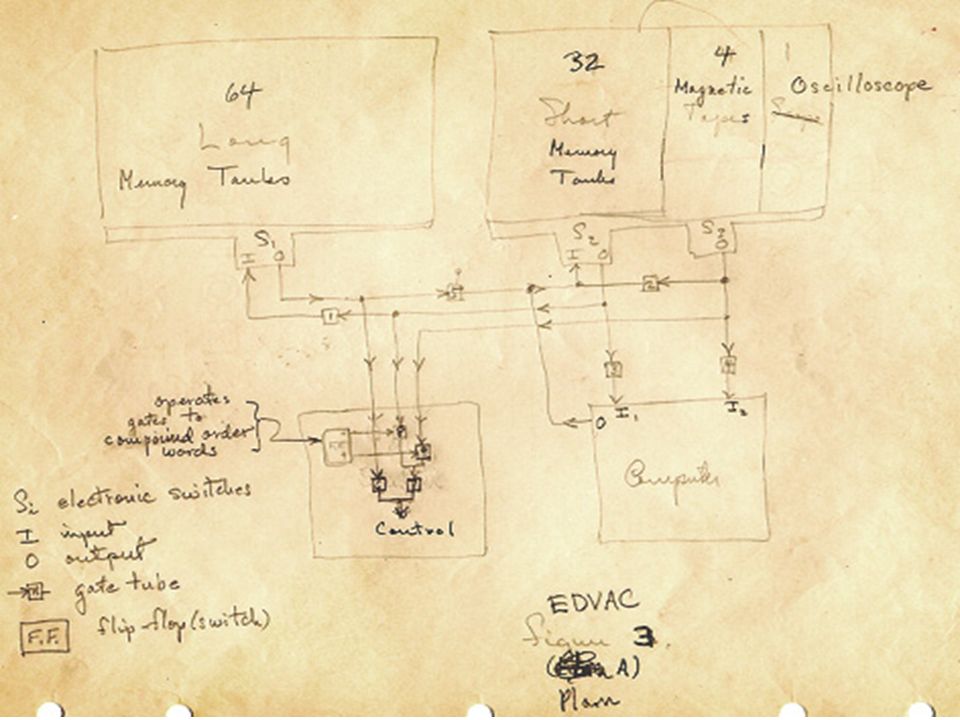 64
Long
Memory Tanks
32
Short
Memory
Tanks
4
Magnetic
Tapes
1
Oscilloscope
S1
I O
S2
I O
S3
O
5
2
1
3
4
operates
gates to
compound order
words
F.F.
Control
O I1 I2
Computer
Si electronic switches
I input
O output
gate tube
F.F. flip-flop (switch)
EDVAC
Figure 3.
A)
Plan